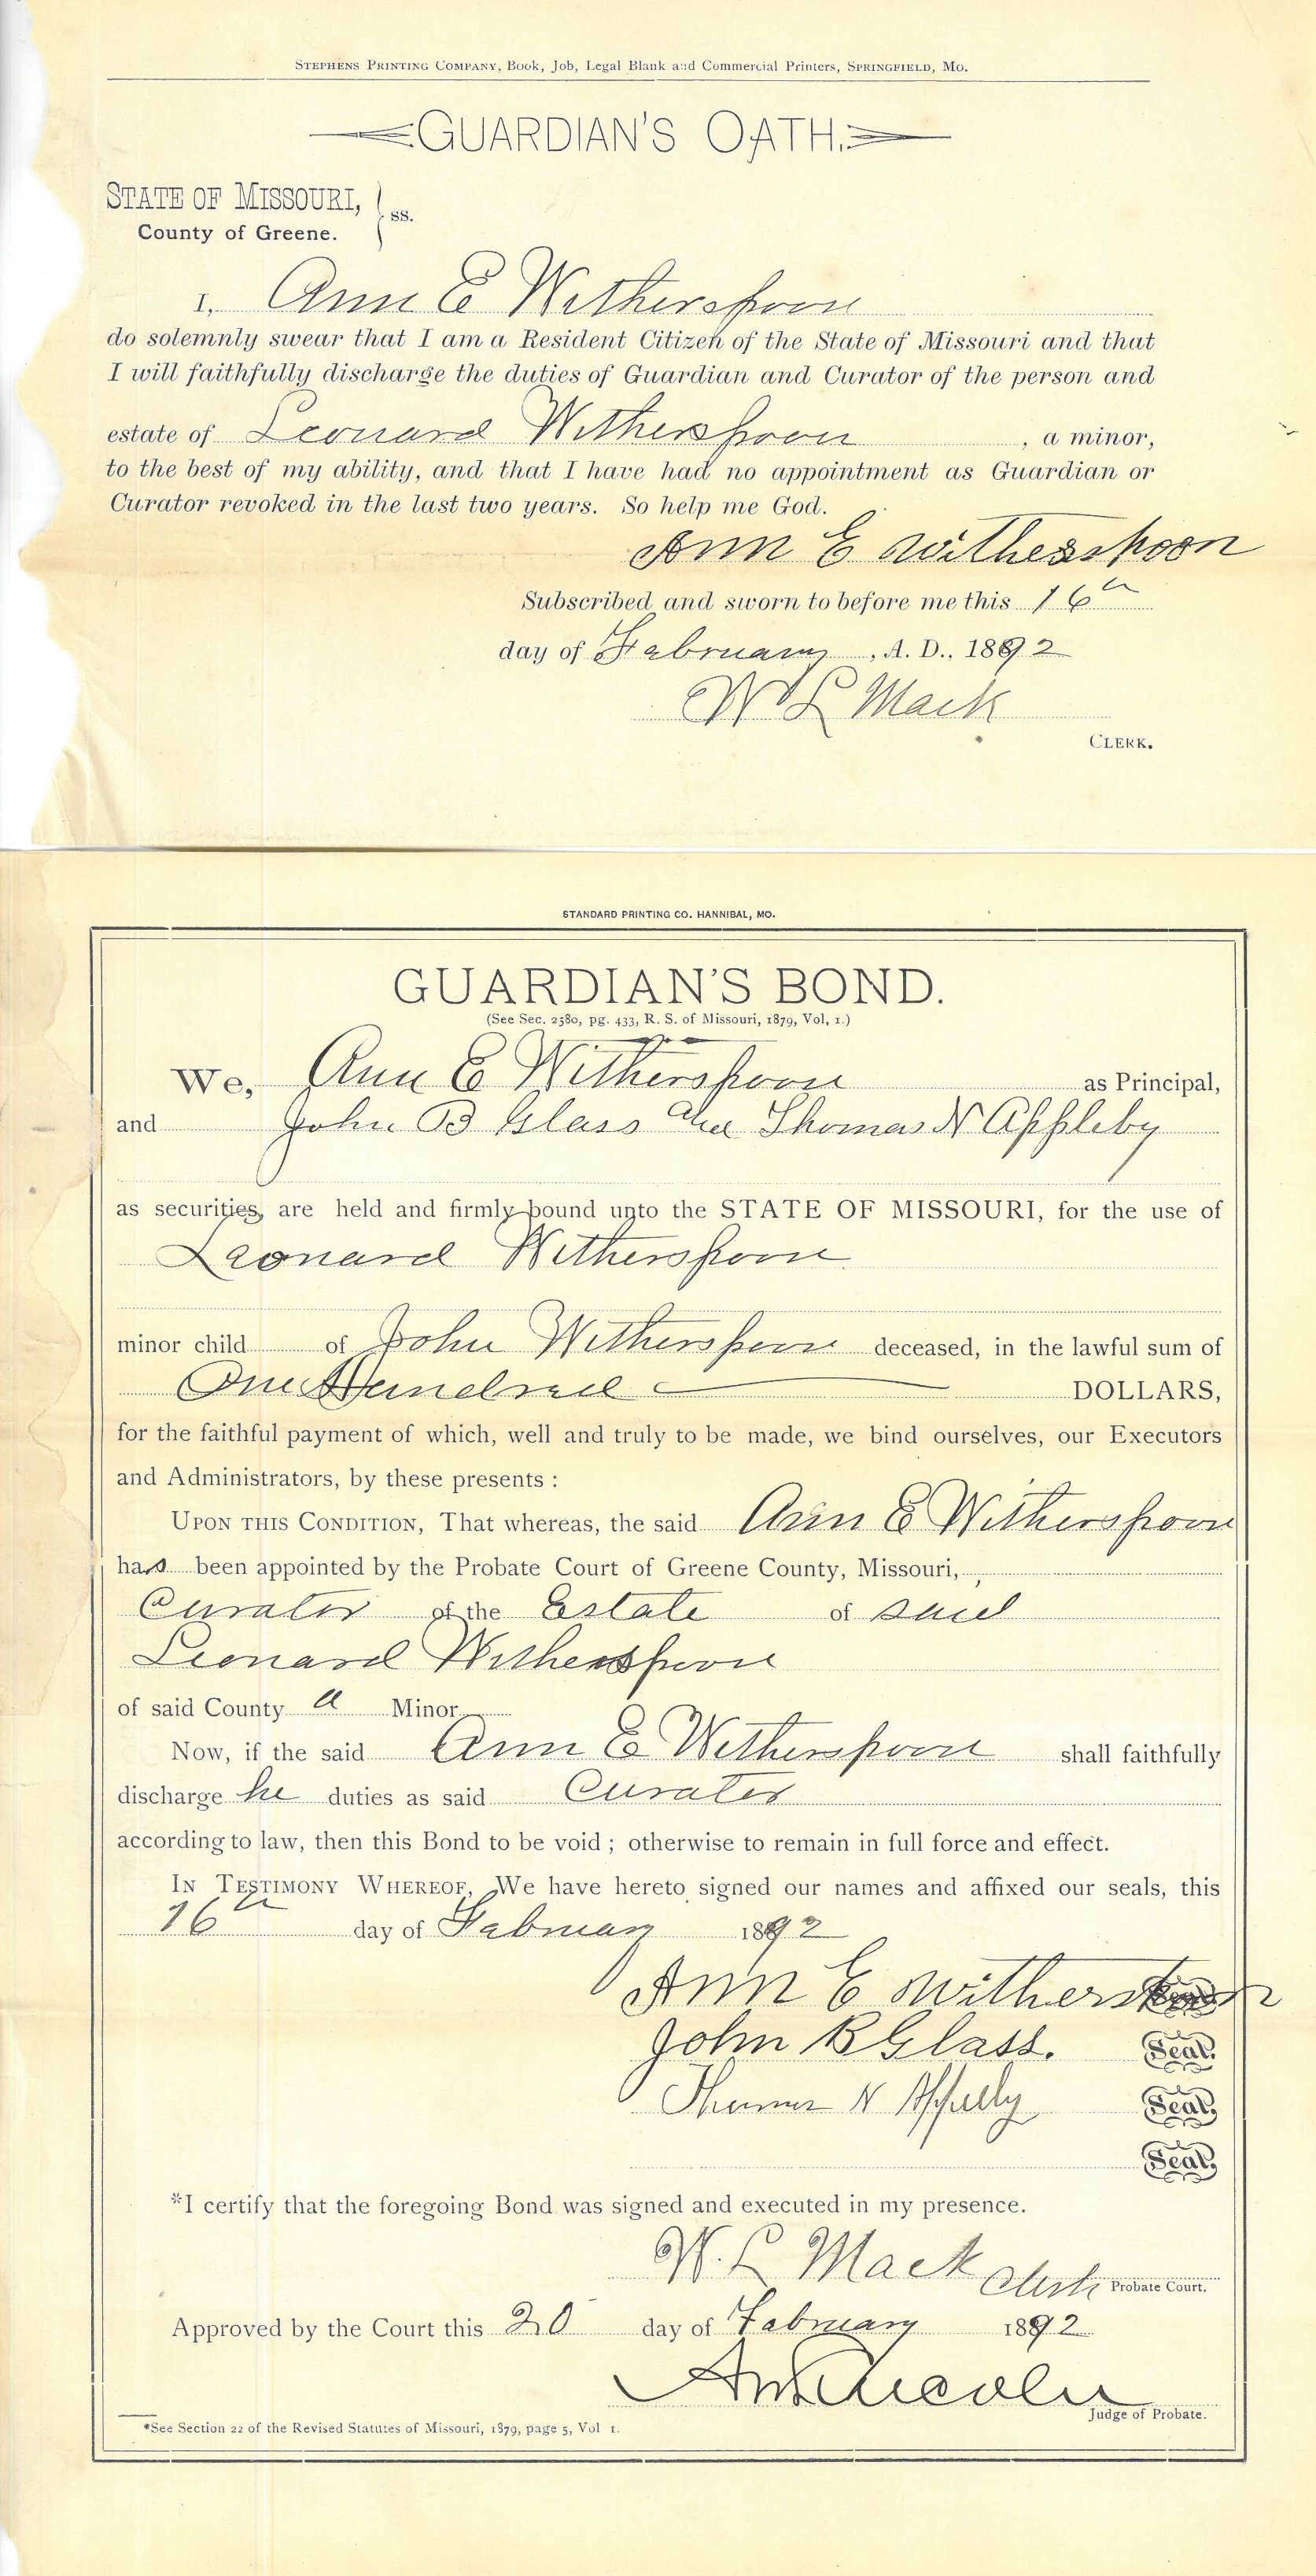 STEPHENS PRINTING COMPANY, Book, Job, Legal Blank and Commercial Printers, SPRINGFIELD, MO.
GUARDIAN'S OATH.
STATE OF MISSOURI,
County of Greene. } ss.
I, Ann E Witherspoon
do solemnly swear that I am a Resident Citizen of the State of Missouri and that
I will faithfully discharge the duties of Guardian and Curator of the person and
estate of Leonard Witherspoon , a minor,
to the best of my ability, and that I have had no appointment as Guardian or
Curator revoked in the last two years. So help me God.
Ann E Witherspoon
Subscribed and sworn to before me this 16th
day of February , A. D., 1892
W L Mack
CLERK.
STANDARD PRINTING CO. HANNIBAL, MO.
GUARDIAN'S BOND.
(See Sec. 2580, pg. 433, R. S. of Missouri, 1879, Vol, 1.)
We, Ann E Witherspoon as Principal,
and John B Glass and Thomas N Appleby
as securities, are held and firmly bound unto the STATE OF MISSOURI, for the use of
Leonard Witherspoon
minor child of John Witherspoon deceased, in the lawful sum of
One Hundred DOLLARS,
for the faithful payment of which, well and truly to be made, we bind ourselves, our Executors
and Administrators, by these presents :
UPON THIS CONDITION, That whereas, the said Ann E Witherspoon
has been appointed by the Probate Court of Greene County, Missouri,
Curator of the Estate of said
Leonard Witherspoon
of said County a Minor
Now, if the said Ann E Witherspoon shall faithfully
discharge he duties as said Curator
according to law, then this Bond to be void ; otherwise to remain in full force and effect.
IN TESTIMONY WHEREOF, We have hereto signed our names and affixed our seals, this
16th day of February 1892
Ann E Witherspoon Seal.
John B Glass. Seal.
Thomas N Appleby Seal.
Seal.
*I certify that the foregoing Bond was signed and executed in my presence.
W. L Mack Clerk Probate Court.
Approved by the Court this 20 day of February 1892
Lincoln
Judge of Probate.
*See Section 22 of the Revised Statutes of Missouri, 1879, page 5, Vol 1.